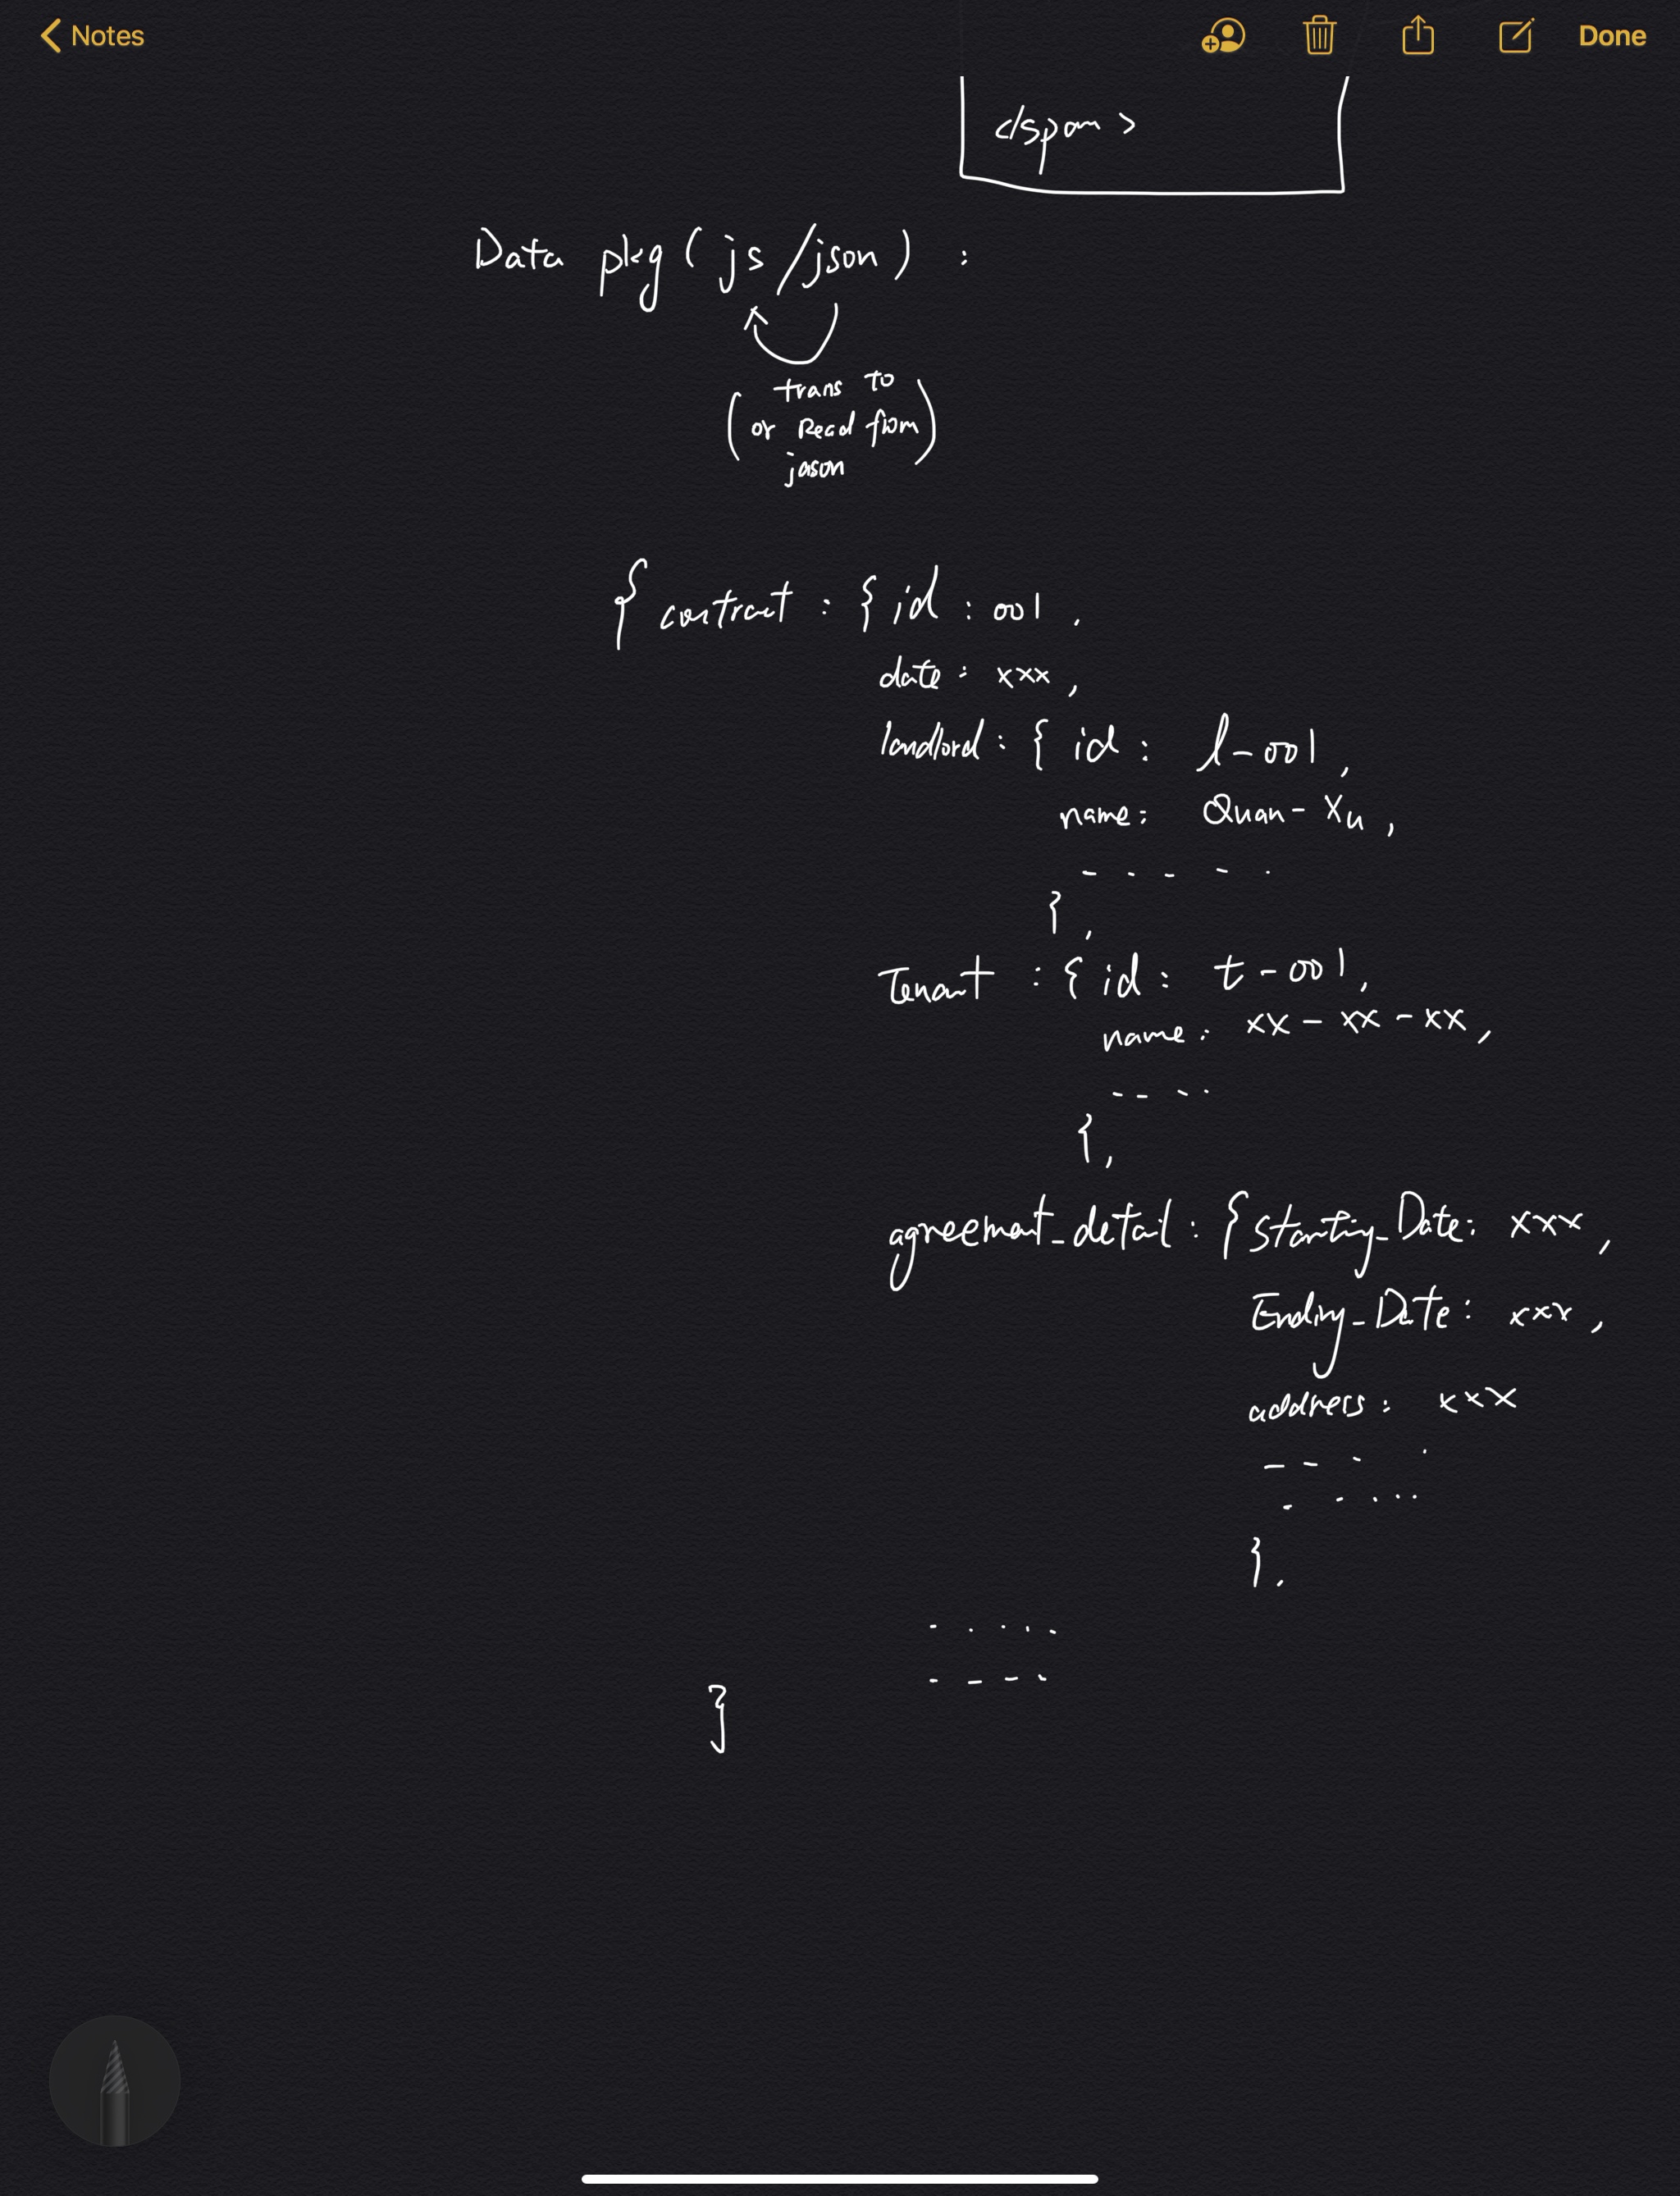 Notes
Done
</span>
Data pkg (js/json) :
(trans to
or Read from
jason)
{ contract : { id : 001 ,
date : xxx ,
landlord : { id : l-001 ,
name : Quan-Xu ,
- - - - -
} ,
Tenant : { id : t-001 ,
name : xx - xx - xx ,
- - - -
{ ,
agreement_detail : { Starting_Date : xxx ,
Ending_Date : xxx ,
address : xxx
- - - .
- - . . .
} ,
. . . . .
- - - -
}